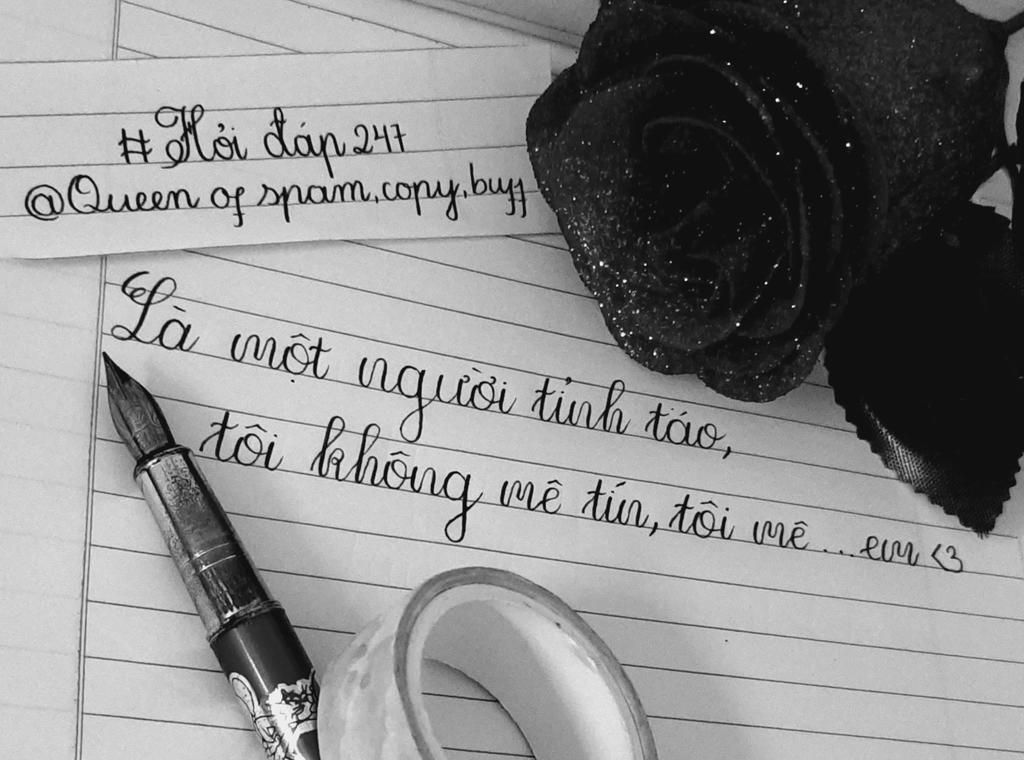 # Hỏi đáp 247
@Queen of spam, copy, buff
Là một người tỉnh táo,
tôi không mê tín, tôi mê ... em <3